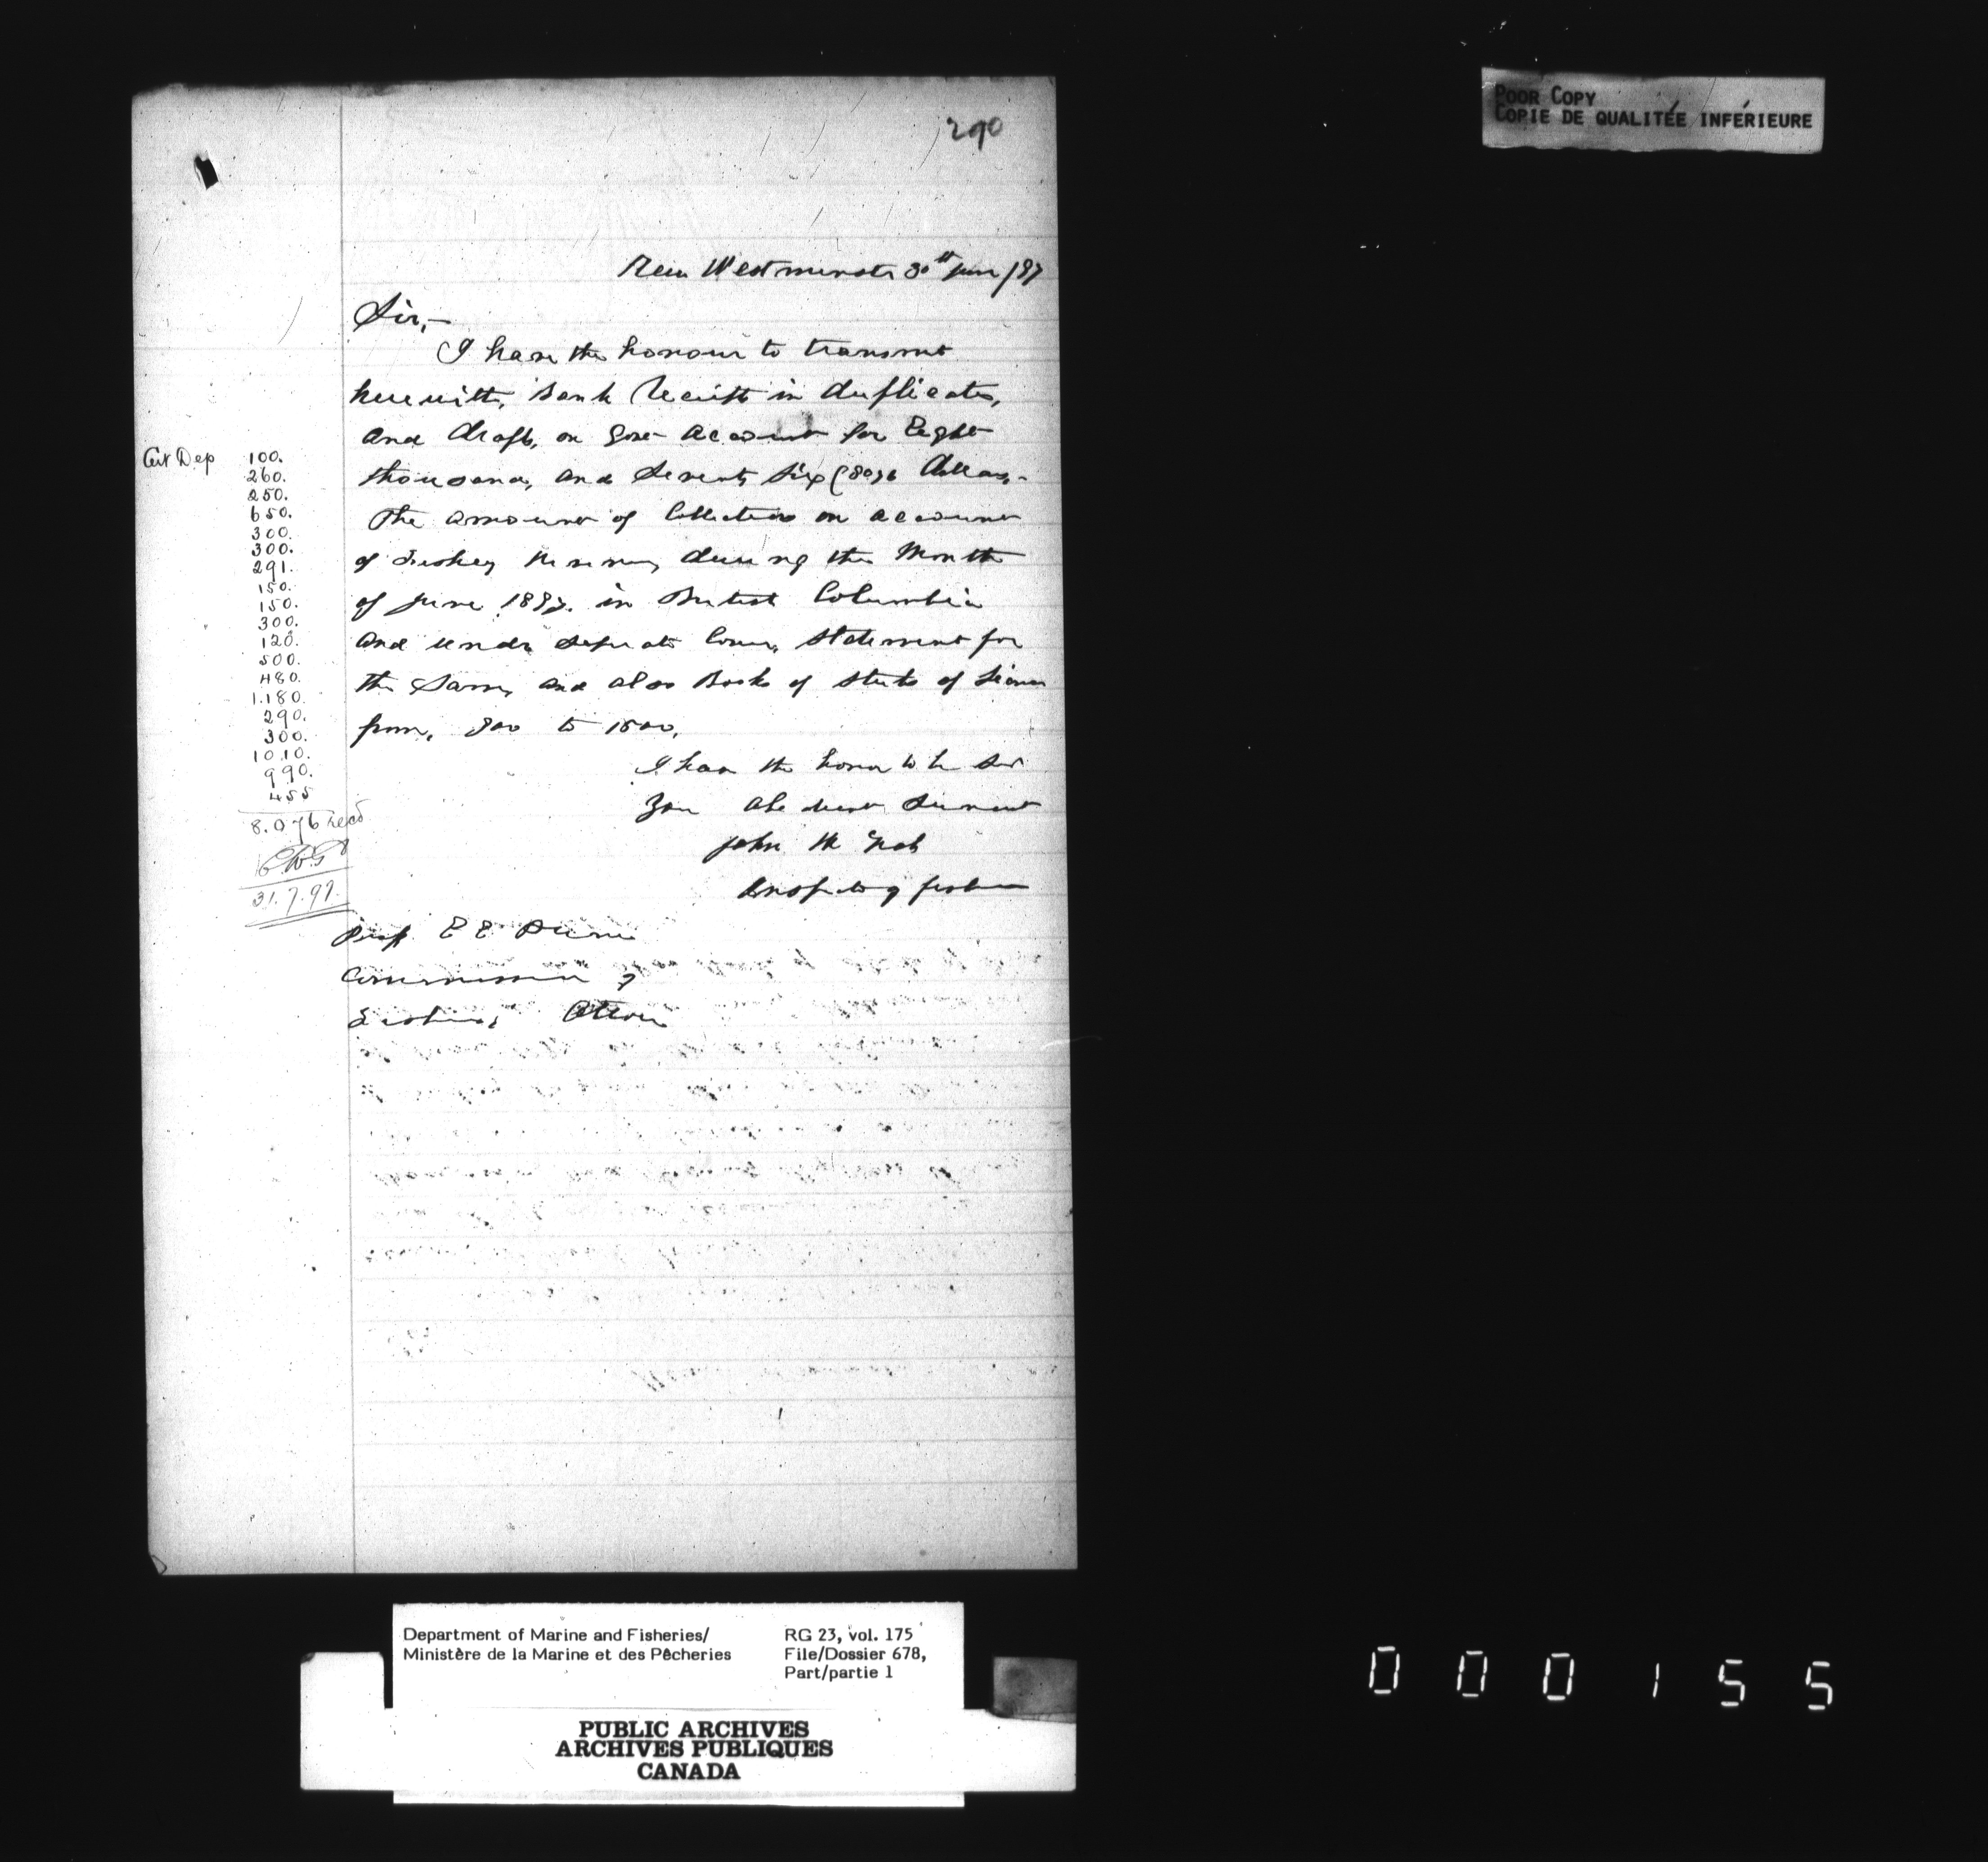 POOR COPY
COPIE DE QUALITÉE INFÉRIEURE
290
New Westminster 30th June /97
Sir,—
I have the honour to transmit
herewith, Bank Receipt in duplicate,
and draft, on Govt account for Eight
thousand, and Seventy Six (8076 Dollars,-
The amount of Collections on account
of Fishery Revenue, during the Month
of June 1897. in British Columbia
and under seperate Cover, statement for
the same, and also Books of stubs of
from, 900 to 1500,
I have the honor to be Sir
Your Obedient Servant
John McNab
Inspector of fisheries
Prof. E E Prince
Commissioner of
Fisheries, Ottawa
Cert Dep 100.
260.
250.
650.
300.
300.
291.
150.
150.
300.
120.
500.
480.
1.180.
290.
300.
1010.
990.
455
8.076 recd
31.7.97.
Department of Marine and Fisheries/
Ministère de la Marine et des Pêcheries
RG 23, vol. 175
File/Dossier 678,
Part/partie 1
PUBLIC ARCHIVES
ARCHIVES PUBLIQUES
CANADA
000155